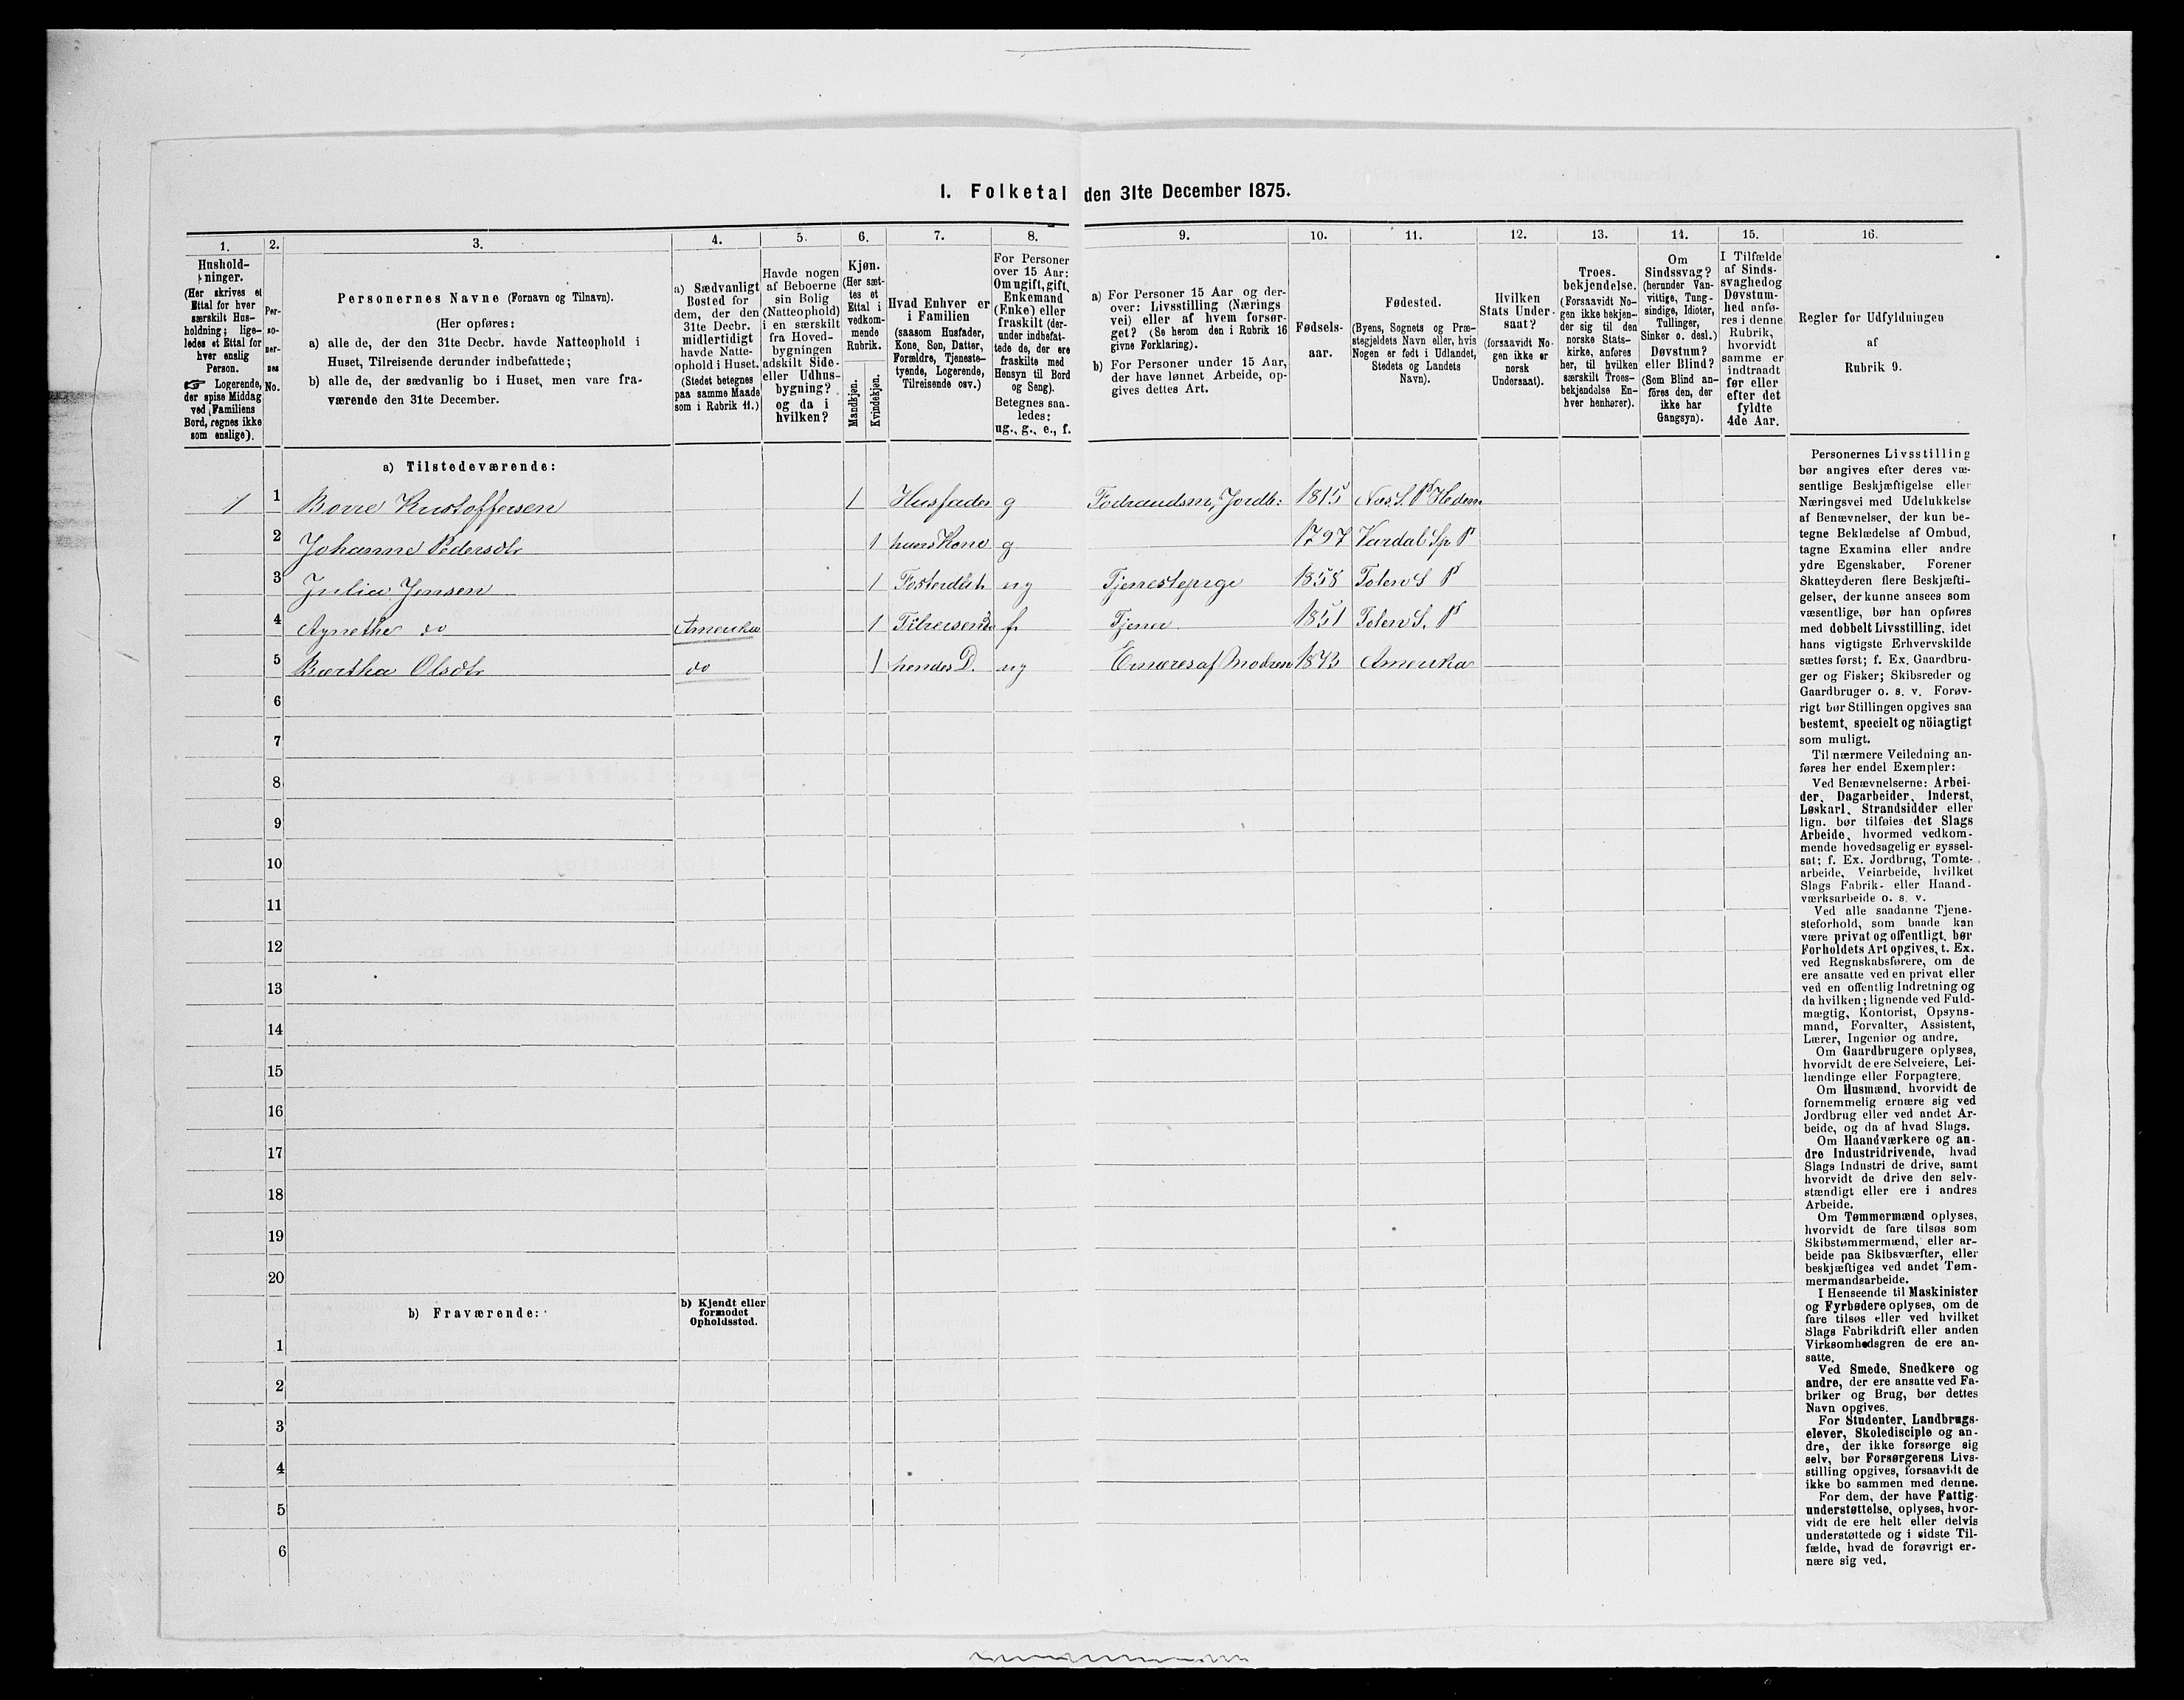 I. Folketal den 31te December 1875.
1. 2. 3. 4. 5. 6. 7. 8. 9. 10. 11. 12. 13. 14. 15. 16.
Hushold-
ninger.
(Her skrives et
Ettal for hver
særskilt Hus-
holdning; lige-
ledes et Ettal for
hver enslig
Person.
☞ Logerende,
der spise Middag
ved Familiens
Bord, regnes ikke
som enslige).
Per-
so-
ner-
nes
No.
Personernes Navne (Fornavn og Tilnavn).
(Her opføres:
a) alle de, der den 31te Decbr. havde Natteophold i
Huset, Tilreisende derunder indbefattede;
b) alle de, der sædvanlig bo i Huset, men vare fra-
værende den 31te December.
a) Sædvanligt
Bosted for
dem, der den
31te Decbr.
midlertidigt
havde Natte-
ophold i Huset.
(Stedet betegnes
paa samme Maade
som i Rubrik 11.)
Havde nogen
af Beboerne
sin Bolig
(Natteophold)
i en særskilt
fra Hoved-
bygningen
adskilt Side-
eller Udhus-
bygning?
og da i
hvilken?
Kjøn.
(Her sæt-
tes et
Ettal i
vedkom-
mende
Rubrik.
Mandkjøn.
Kvindekjøn.
Hvad Enhver er
i Familien
(saasom Husfader,
Kone, Søn, Datter,
Forældre, Tjeneste-
tyende, Logerende,
Tilreisende osv.)
For Personer
over 15 Aar:
Om ugift, gift,
Enkemand
(Enke) eller
fraskilt (der-
under indbefat-
tede de, der ere
fraskilte med
Hensyn til Bord
og Seng).
Betegnes saa-
ledes:
ug., g., e., f.
a) For Personer 15 Aar og der-
over: Livsstilling (Nærings
vei) eller af hvem forsør-
get? (Se herom den i Rubrik 16
givne Forklaring).
b) For Personer under 15 Aar,
der have lønnet Arbeide, op-
gives dettes Art.
Fødsels-
aar.
Fødested.
(Byens, Sognets og Præ-
stegjeldets Navn eller, hvis
Nogen er født i Udlandet,
Stedets og Landets
Navn).
Hvilken
Stats Under-
saat?
(forsaavidt No-
gen ikke er
norsk
Undersaat).
Troes-
bekjendelse.
(Forsaavidt No-
gen ikke bekjen-
der sig til den
norske Stats-
kirke, anføres
her, til hvilken
særskilt Troes-
bekjendelse En-
hver henhører).
Om
Sindssvag?
(herunder Van-
vittige, Tung-
sindige, Idioter,
Tullinger,
Sinker o. desl.)
Døvstum?
eller Blind?
(Som Blind an-
føres den, der
ikke har
Gangsyn).
I Tilfælde
af Sinds-
svaghed og
Døvstum-
hed anfø-
res i denne
Rubrik,
hvorvidt
samme er
indtraadt
før eller
efter det
fyldte
4de Aar.
Regler for Udfyldningen
af
Rubrik 9.
a) Tilstedeværende:
1 1 Borre Kristoffersen 1 Husfader g Jordb: 1815 Næs S. P Hedem
2 Johanne Pedersdtr 1 hans Kone g 1797 Vardal Sp P
3 Julia Jensen 1 Fosterdatt. ug Tjenestepige 1858 Toten S P
4 Agnethe do Amerika 1 Tilreisende f. Tjener 1851 Toten S. P
5 Bærtha Olsdtr do 1 hendes D. ug Ernæres af Modren 1873 Amerika
6
7
8
9
10
11
12
13
14
15
16
17
18
19
20
b) Fraværende:
b) Kjendt eller
formodet
Opholdssted.
1
2
3
4
5
6
Personernes Livsstilling
bør angives efter deres væ-
sentlige Beskjæftigelse eller
Næringsvei med Udelukkelse
af Benævnelser, der kun be-
tegne Beklædelse af Ombud,
tagne Examina eller andre
ydre Egenskaber. Forener
Skatteyderen flere Beskjæfti-
gelser, der kunne ansees som
væsentlige, bør han opføres
med dobbelt Livsstilling, idet
hans vigtigste Erhvervskilde
sættes først; f. Ex. Gaardbru-
ger og Fisker; Skibsreder og
Gaardbruger o. s. v. Forøv-
rigt bør Stillingen opgives saa
bestemt, specielt og nöiagtigt
som muligt.
Til nærmere Veiledning an-
føres her endel Exempler:
Ved Benævnelserne: Arbei-
der, Dagarbeider, Inderst,
Løskarl, Strandsidder eller
lign. bør tilføies det Slags
Arbeide, hvormed vedkom-
mende hovedsagelig er syssel-
sat; f. Ex. Jordbrug, Tomte-
arbeide, Veiarbeide, hvilket
Slags Fabrik- eller Haand-
værksarbeide o. s. v.
Ved alle saadanne Tjene-
steforhold, som baade kan
være privat og offentligt, bør
Forholdets Art opgives, t. Ex.
ved Regnskabsførere, om de
ere ansatte ved en privat eller
ved en offentlig Indretning og
da hvilken; lignende ved Fuld-
mægtig, Kontorist, Opsyns-
mand, Forvalter, Assistent,
Lærer, Ingeniør og andre.
Om Gaardbrugere oplyses,
hvorvidt de ere Selveiere, Lei-
lændinge eller Forpagtere.
Om Husmænd, hvorvidt de
fornemmelig ernære sig ved
Jordbrug eller ved andet Ar-
beide, og da af hvad Slags.
Om Haandværkere og an-
dre Industridrivende, hvad
Slags Industri de drive, samt
hvorvidt de drive den selv-
stændigt eller ere i andres
Arbeide.
Om Tømmermænd oplyses,
hvorvidt de fare tilsøs som
Skibstømmermænd, eller ar-
beide paa Skibsværfter, eller
beskjæftiges ved andet Tøm-
mermandsarbeide.
I Henseende til Maskinister
og Fyrbødere oplyses, om de
fare tilsøs eller ved hvilket
Slags Fabrikdrift eller anden
Virksomhedsgren de ere an-
satte.
Ved Smede, Snedkere og
andre, der ere ansatte ved Fa-
briker og Brug, bør dettes
Navn opgives.
For Studenter, Landbrugs-
elever, Skoledisciple og an-
dre, der ikke forsørge sig
selv, bør Forsørgerens Livs-
stilling opgives, forsaavidt de
ikke bo sammen med denne.
For dem, der have Fattig-
understøttelse, oplyses, hvor-
vidt de ere helt eller delvis
understøttede og i sidste Til-
fælde, hvad de forøvrigt er-
nære sig ved.